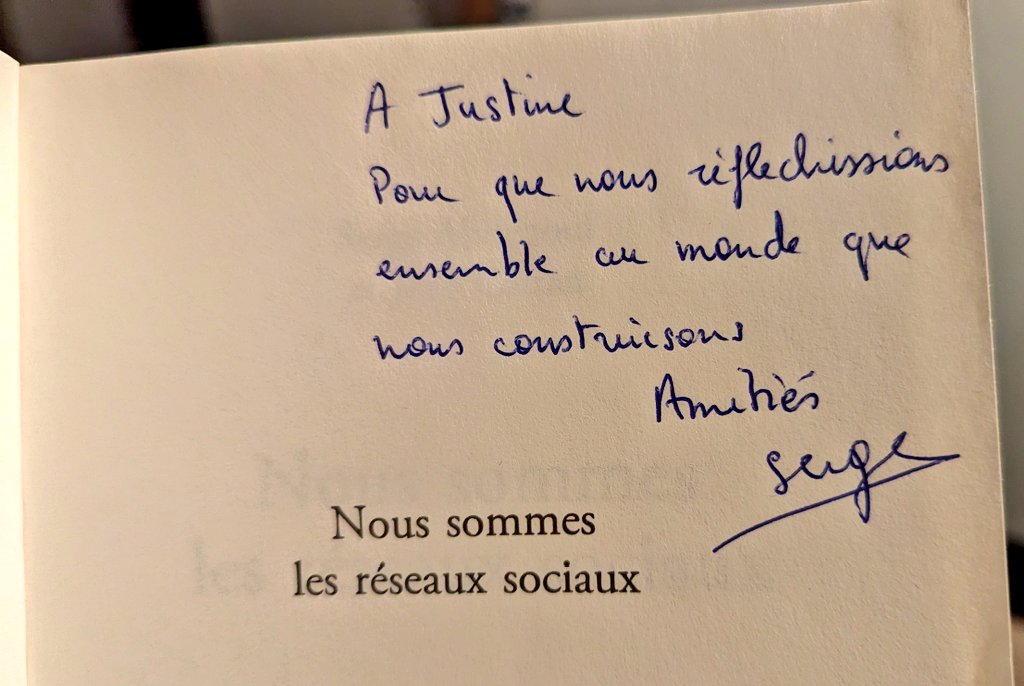 A Justine
Pour que nous réflechissions
ensemble au monde que
nous construisons
Amitiés
Serge
Nous sommes
les réseaux sociaux